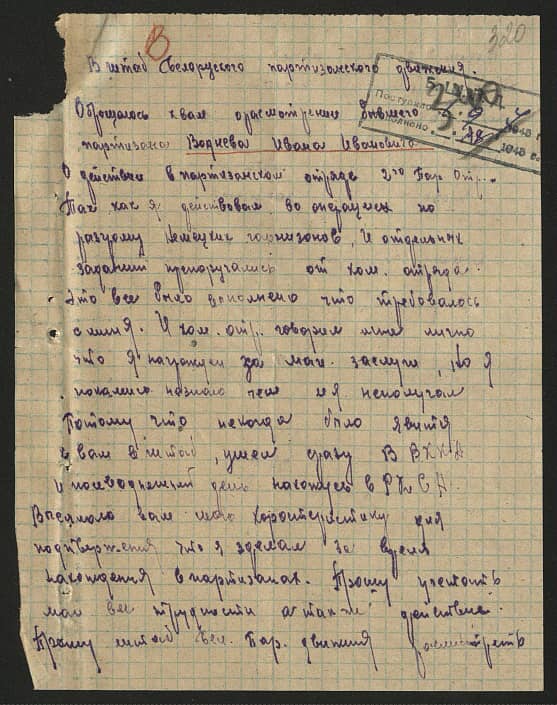 В 320
В штаб Белоруского партизанского движения.
Поступило
1948 г.
1948 г.
Оброщаюсь квам орасмотрении бывшего
партизана Воднева Ивана Ивановича
О действии в партизанском отряде 2го Пар. Отр.
Так как я действовал во операциях по
разгрому Немецких гарнизонов, И отдельных
заданий препоручались от ком. отряда.
Это все было исполнено что требовалось
сменя. И ком. отр. говорил мне лично
что я награжден за маи заслуги, Но я
покамись назнаю чем и я неполучал
Потому что некогда было явится
к вам в штаб, ушел сразу В
и посеводнешний день нахожусь в
Высялаю вам мою Хоростеристику для
подтверждения что я зделал за время
нахождения в партизанах. Прошу учесть
маи все трудности а также действие.
Прошу штаб Бел. Пар. движния